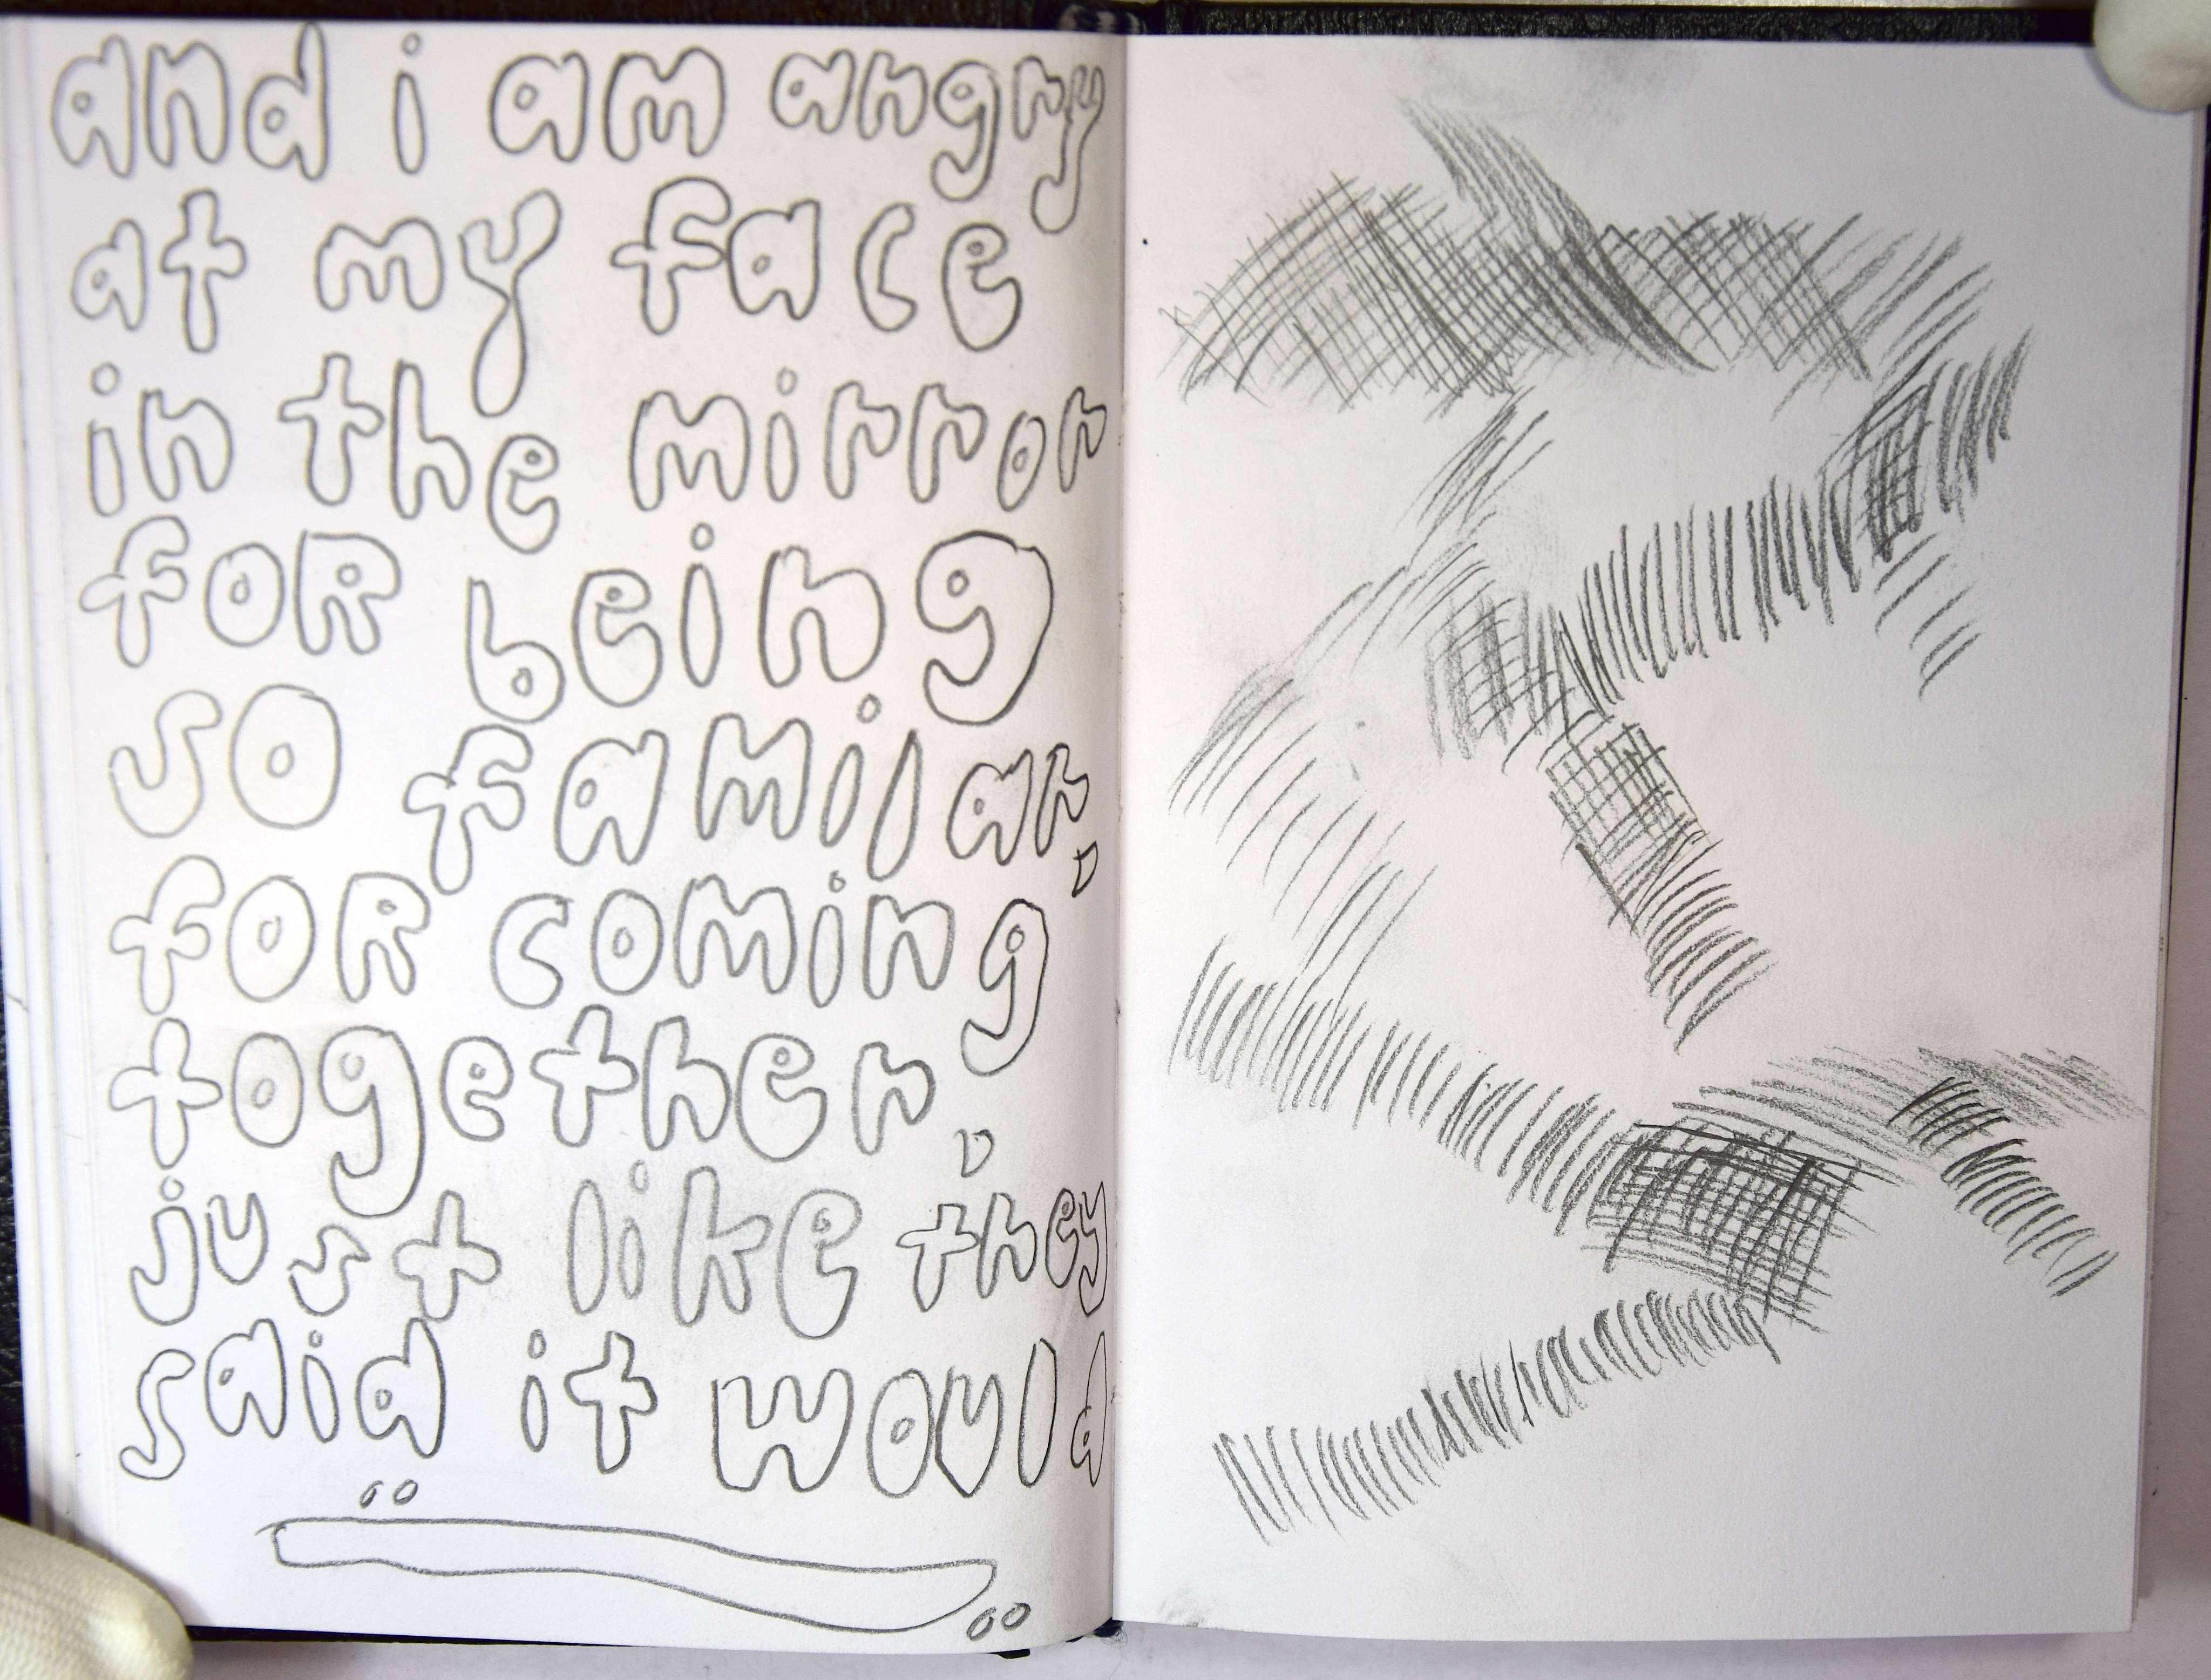 and i am angry
at my face
in the mirror
foR being
so familar,
foR coming
together,
just like they
said it would